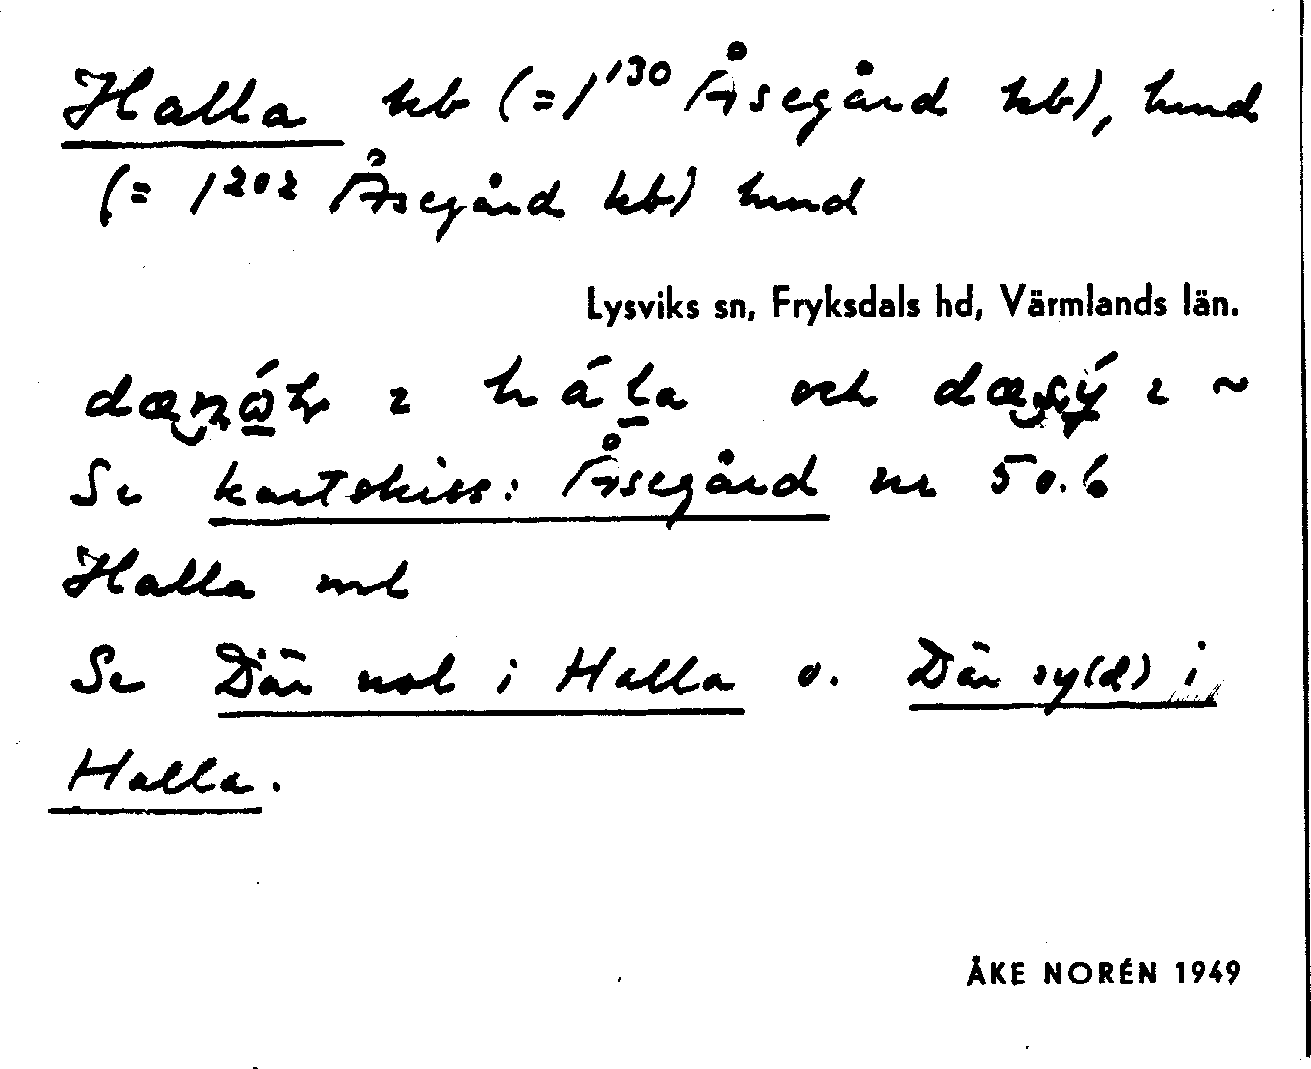 Halla hb (= 1¹³⁰ Åsegård hb), hmd
(= 1²⁰² Åsegård hb) hmd
Lysviks sn, Fryksdals hd, Värmlands län.
och
Se kartskiss: Åsegård nr 50.6
Halla
Se Där nol i Halla o. Där sy(d) i
Halla.
ÅKE NORÉN 1949